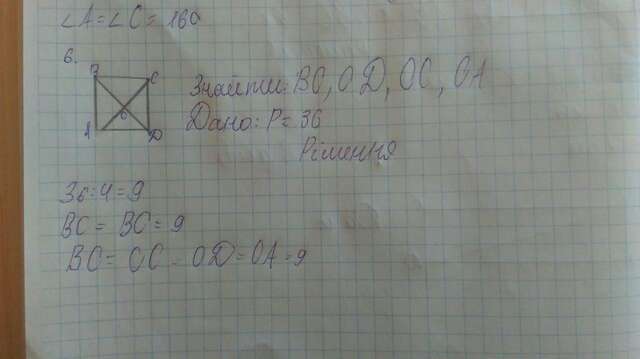 ∠A = ∠C = 160
6.
B C
O
A D
Знайти: BC, OD, OC, OA
Дано: P = 36
Рішення
36:4 = 9
BC = BC = 9
BC = OC - OD = OA = 9